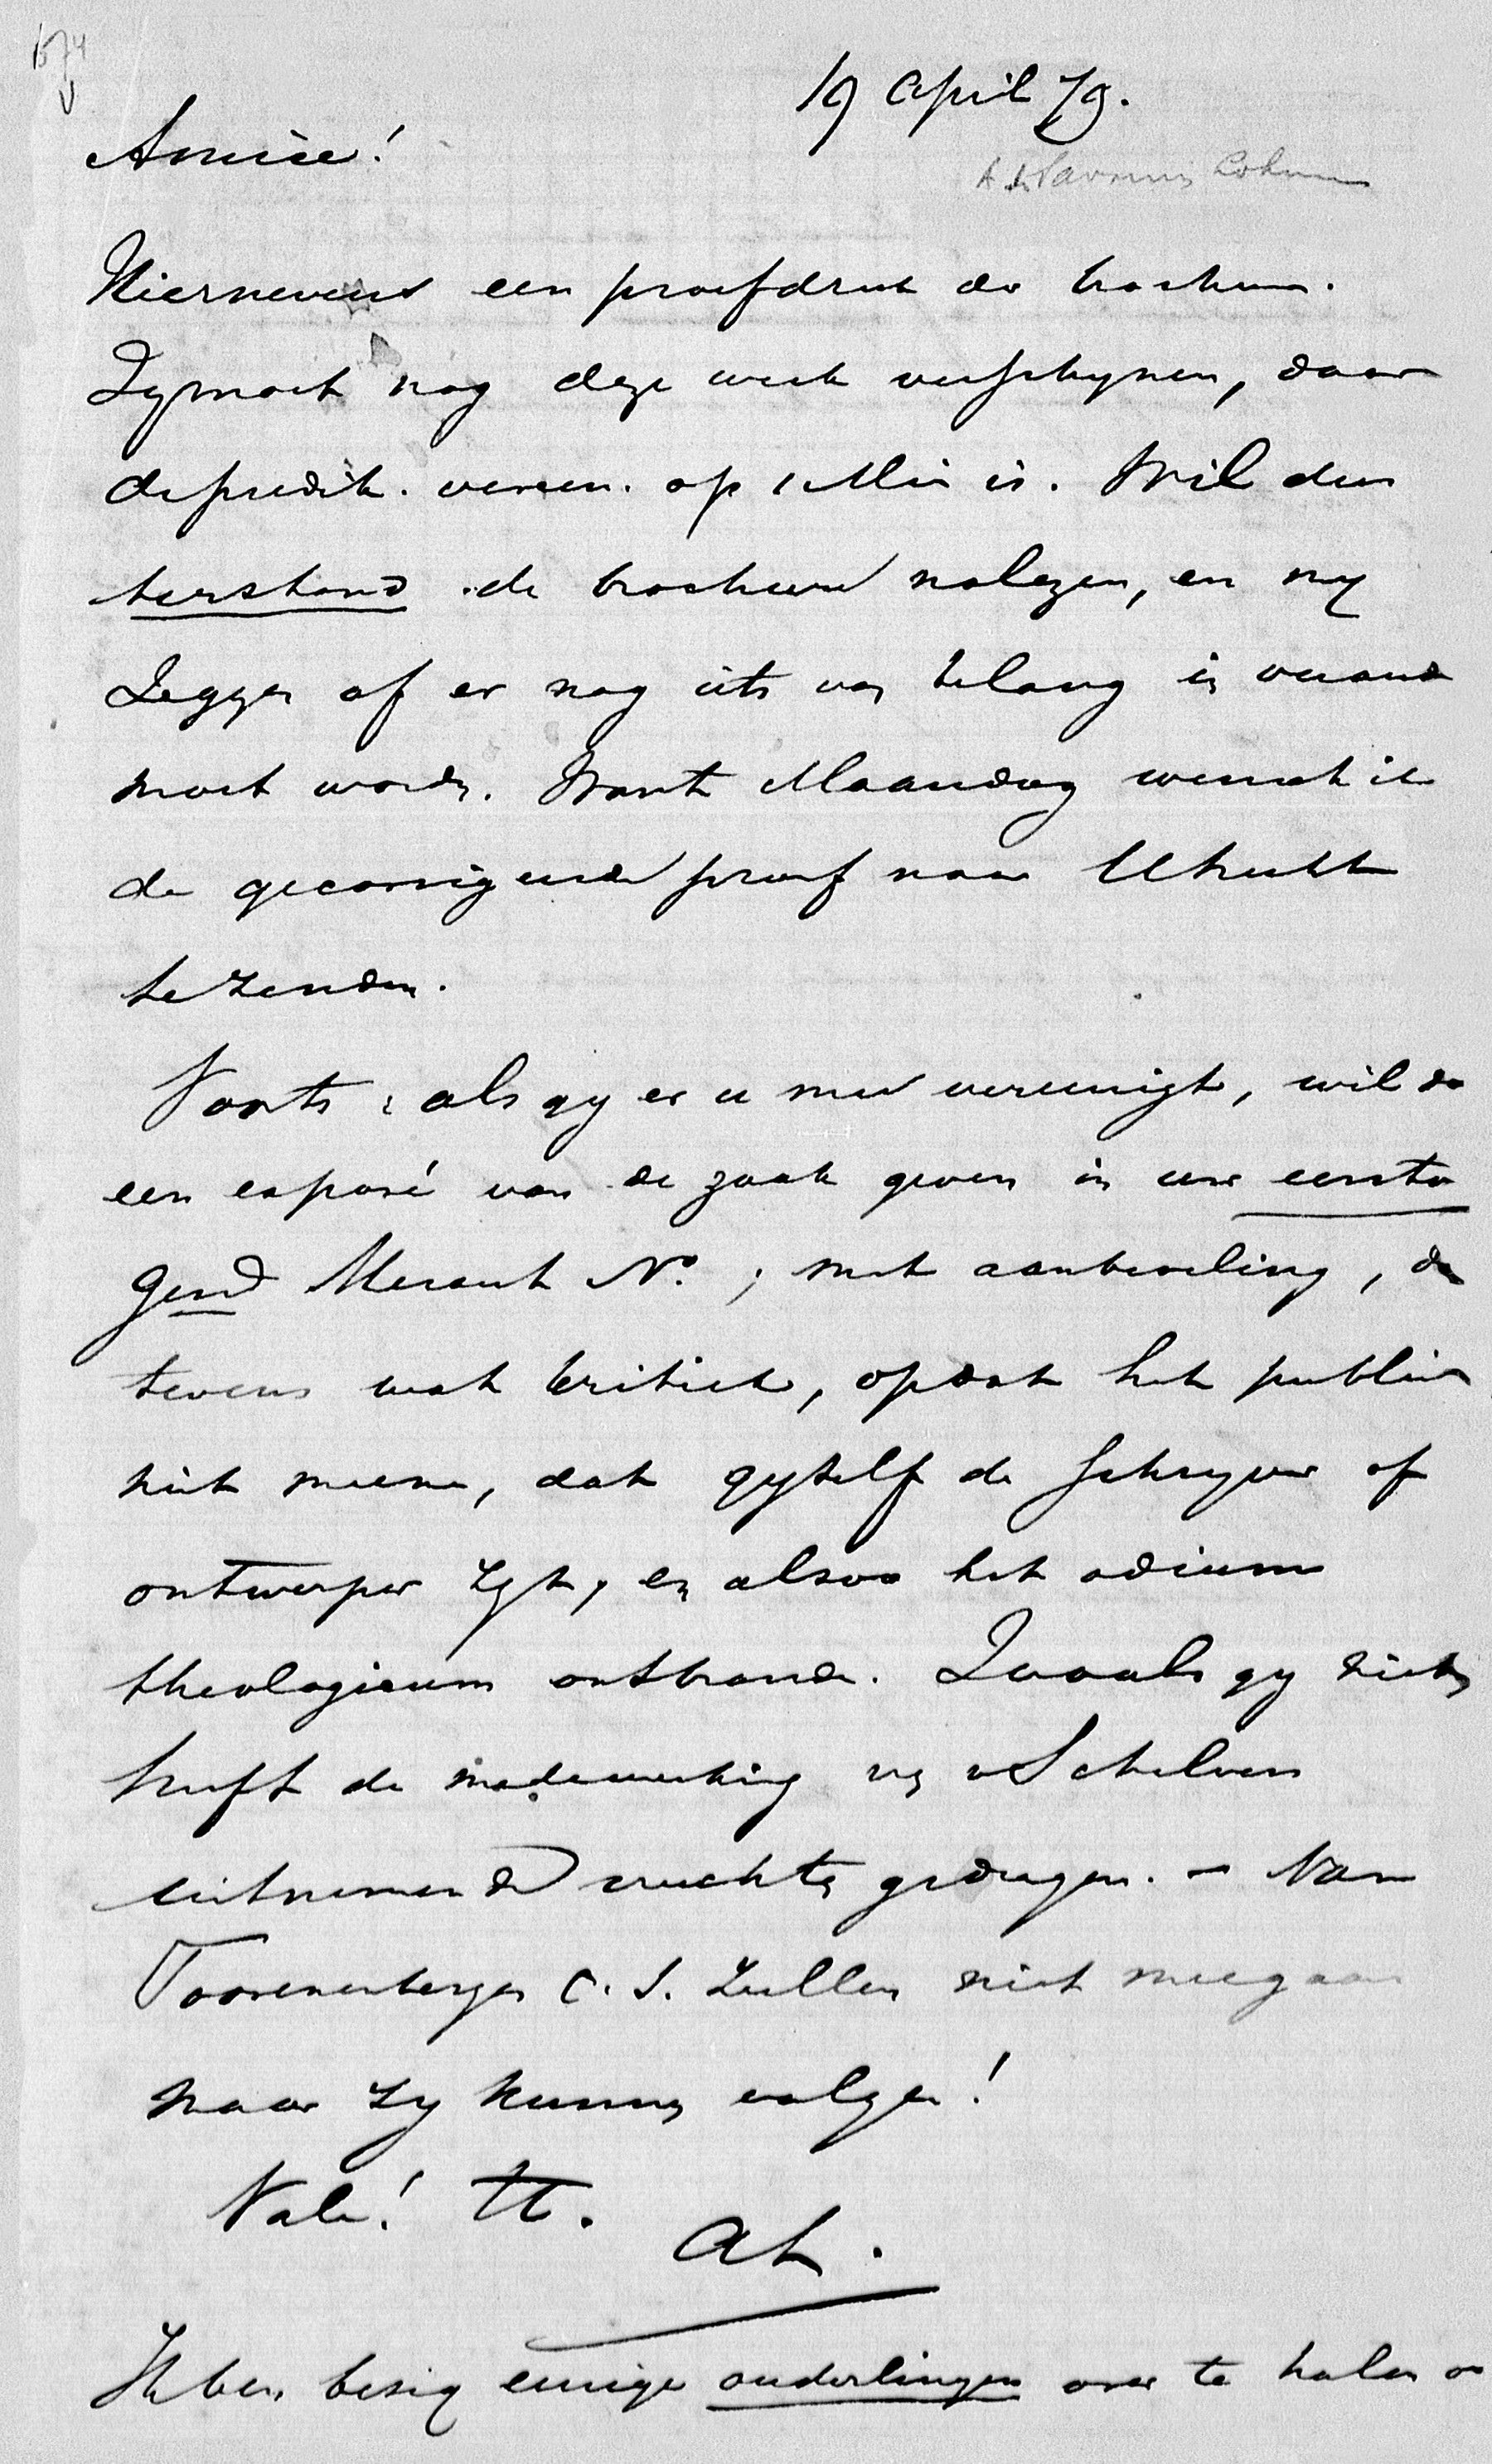 1574
19 April 79.
Amice!
A de Savornin Lohman
Hiernevens een proefdruk der brochure.
Zy moet nog deze week verschynen, daar
de predik. vereen. op 1 Mei is. Wil dus
terstond de brochure nalezen, en my
zeggen of er nog iets van belang in verand
moet worden. Want Maandag wensch ik
de gecorrigeerde proef naar Utrecht
te zenden.
Voorts: als gy er u mee vereenigt, wil dan
een exposé van de zaak geven in uw eerstvol
gend Heraut No.; met aanbeveling, doch
tevens wat kritiek, opdat het publiek
niet meene, dat gyzelf de schryver of
ontwerper zyt, en alzoo het odium
theologicum ontbrande. Zooals gy ziet,
heeft de medewerking van v Schelven
uitnemende vruchten gedragen. - Van
Toorenenbergen c.s. zullen niet meegaan
maar zy kunnen volgen!
Vale! tt.
AL.
Ik ben bezig eenige ouderlingen over te halen om